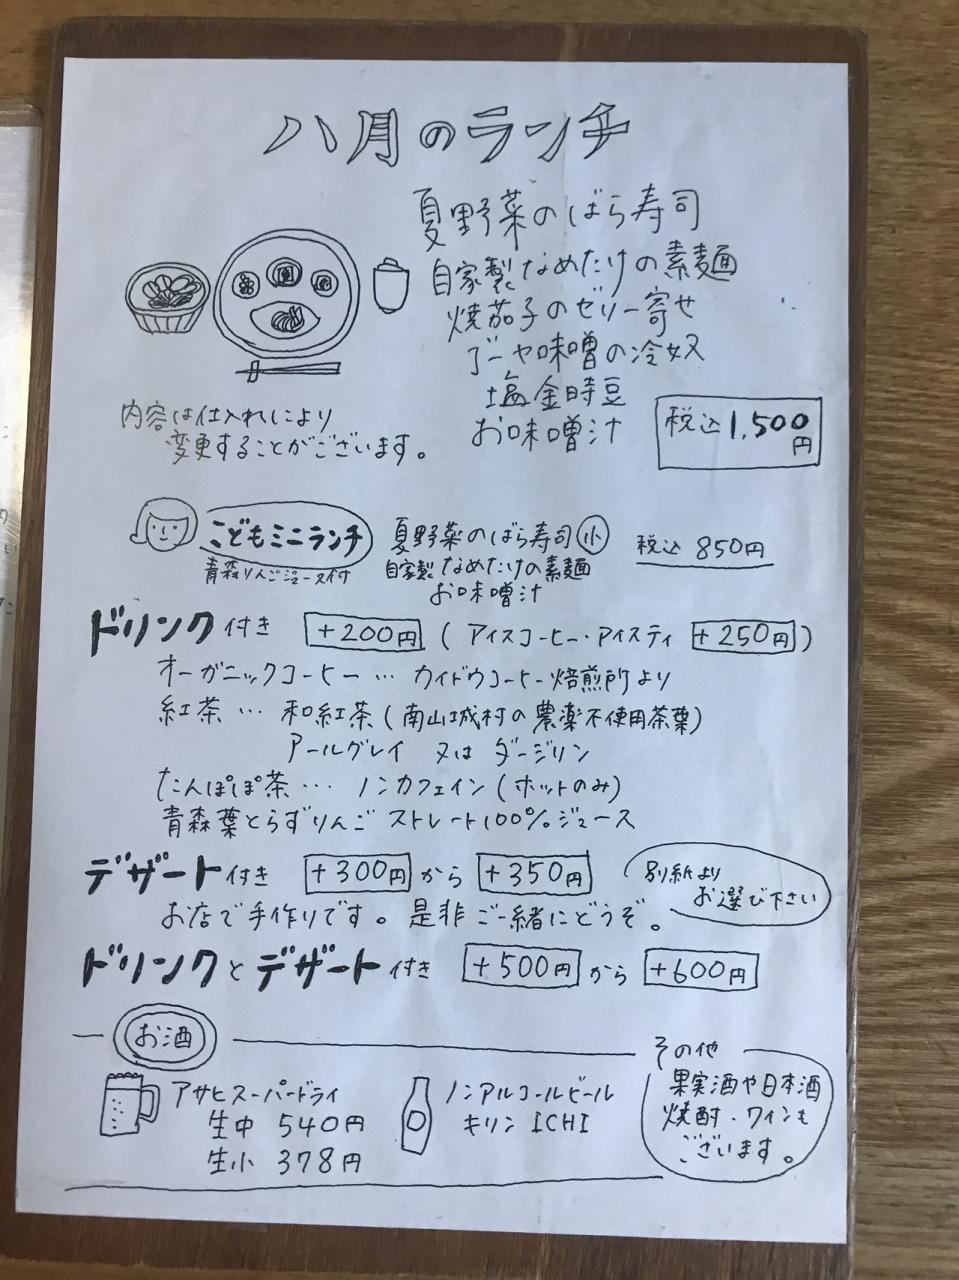 八月のランチ
夏野菜のばら寿司
自家製なめたけの素麺
焼茄子のゼリー寄せ
ゴーヤ味噌の冷奴
塩金時豆
お味噌汁
税込1,500円
内容は仕入れにより
変更することがございます。
こどもミニランチ
青森りんごジュース付
夏野菜のばら寿司 小
自家製なめたけの素麺
お味噌汁
税込 850円
ドリンク付き +200円 (アイスコーヒー・アイスティ +250円)
オーガニックコーヒー… カイドウコーヒー焙煎所より
紅茶… 和紅茶(南山城村の農薬不使用茶葉)
アールグレイ 又は ダージリン
たんぽぽ茶… ノンカフェイン(ホットのみ)
青森葉とらずりんご ストレート100%ジュース
デザート付き +300円 から +350円
別紙より
お選び下さい
お店で手作りです。是非ご一緒にどうぞ。
ドリンクとデザート付き +500円 から +600円
お酒
アサヒスーパードライ
生中 540円
生小 378円
ノンアルコールビール
キリン ICHI
その他
果実酒や日本酒
焼酎・ワインも
ございます。